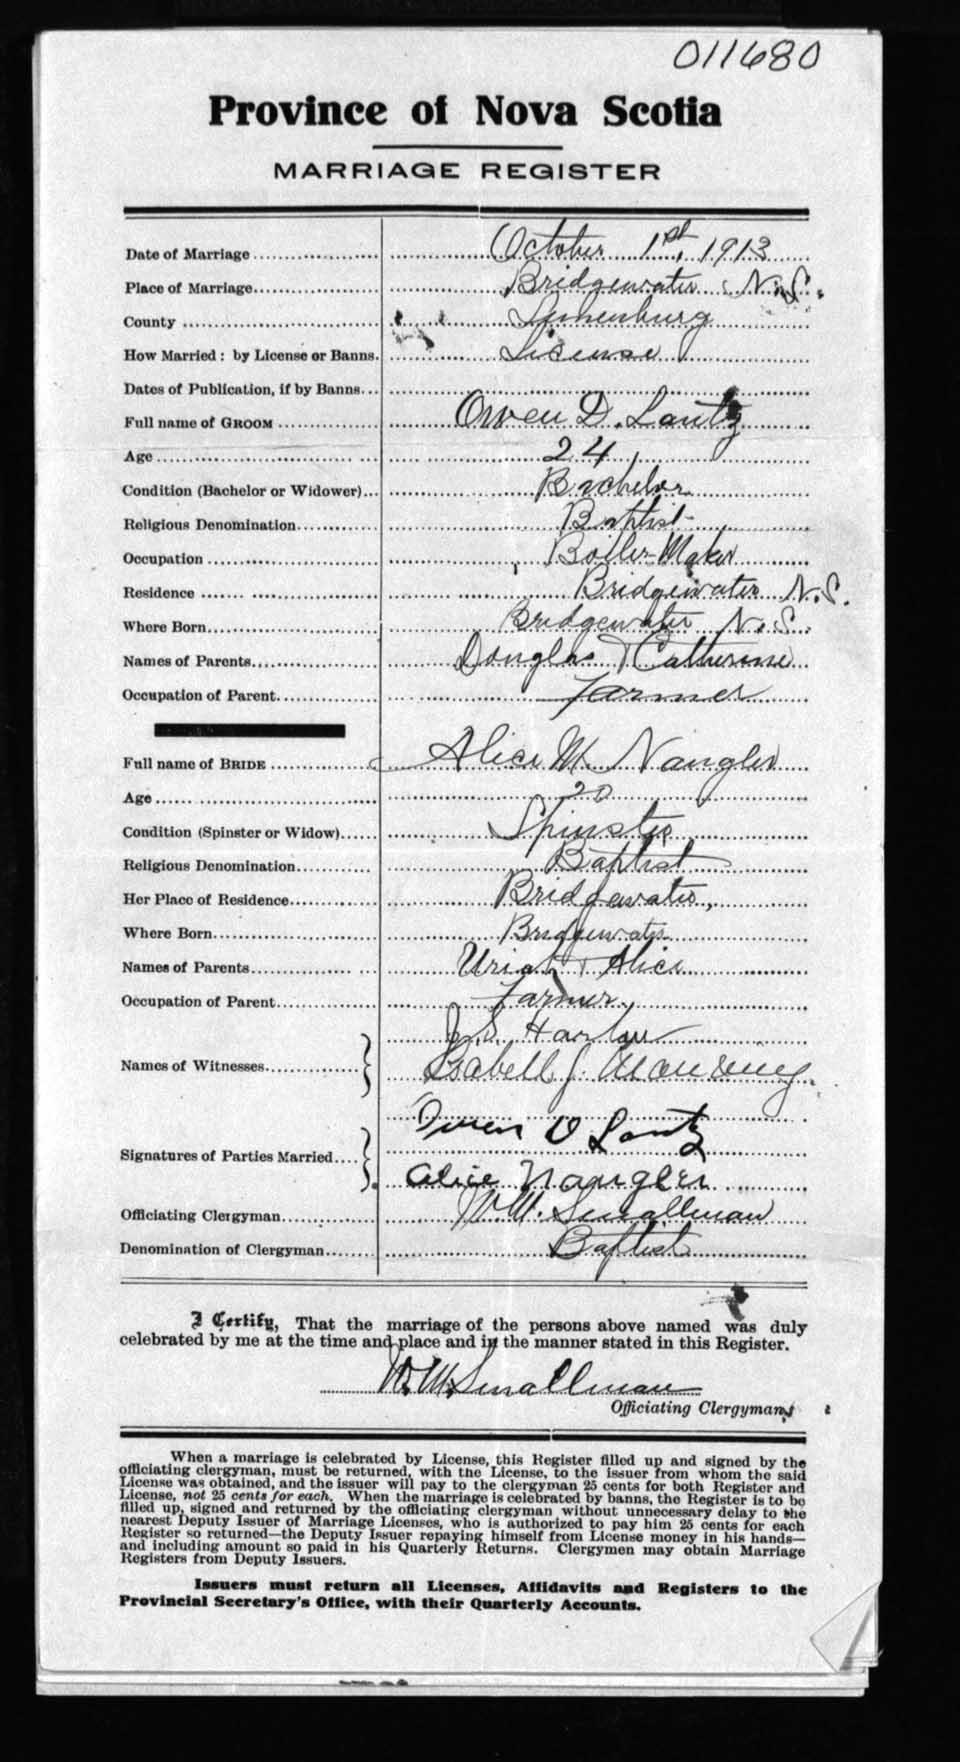 011680
Province of Nova Scotia
MARRIAGE REGISTER
Date of Marriage October 1st, 1913
Place of Marriage Bridgewater N.S.
County Lunenburg
How Married: by License or Banns. License
Dates of Publication, if by Banns
Full name of GROOM Owen D. Lantz
Age 24
Condition (Bachelor or Widower) Bachelor
Religious Denomination Baptist
Occupation Boiler-Maker
Residence Bridgewater N.S.
Where Born Bridgewater N.S.
Names of Parents Douglas & Catherine
Occupation of Parent Farmer
Full name of BRIDE Alice M. Nangler
Age 20
Condition (Spinster or Widow) Spinster
Religious Denomination Baptist
Her Place of Residence Bridgewater,
Where Born Bridgewater
Names of Parents Uriah & Alice
Occupation of Parent Farmer
J. S. Harlow
Names of Witnesses Isabell J. Manning
Owen D Lantz
Signatures of Parties Married
Alice Nangler
Officiating Clergyman W. M. Smallman
Denomination of Clergyman Baptist
I Certify, That the marriage of the persons above named was duly
celebrated by me at the time and place and in the manner stated in this Register.
W. M. Smallman
Officiating Clergyman
When a marriage is celebrated by License, this Register filled up and signed by the
officiating clergyman, must be returned, with the License, to the issuer from whom the said
License was obtained, and the issuer will pay to the clergyman 25 cents for both Register and
License, not 25 cents for each. When the marriage is celebrated by banns, the Register is to be
filled up, signed and returned by the officiating clergyman without unnecessary delay to the
nearest Deputy Issuer of Marriage Licenses, who is authorized to pay him 25 cents for each
Register so returned—the Deputy Issuer repaying himself from License money in his hands—
and including amount so paid in his Quarterly Returns. Clergymen may obtain Marriage
Registers from Deputy Issuers.
Issuers must return all Licenses, Affidavits and Registers to the
Provincial Secretary's Office, with their Quarterly Accounts.